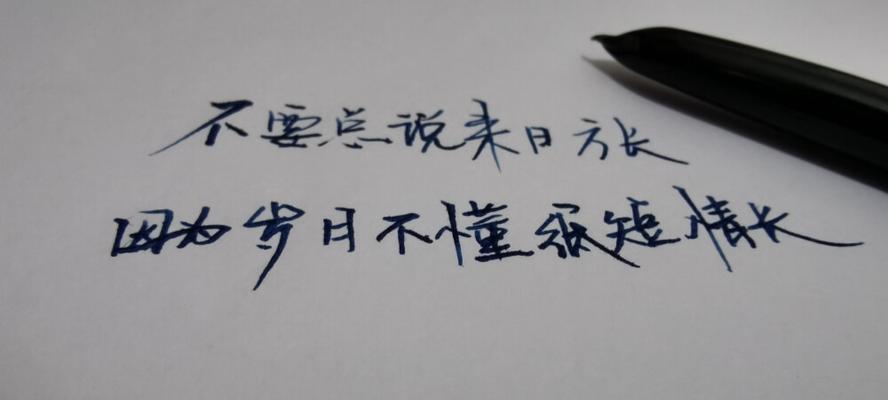 不要总说来日方长
因为岁月不懂很短情长